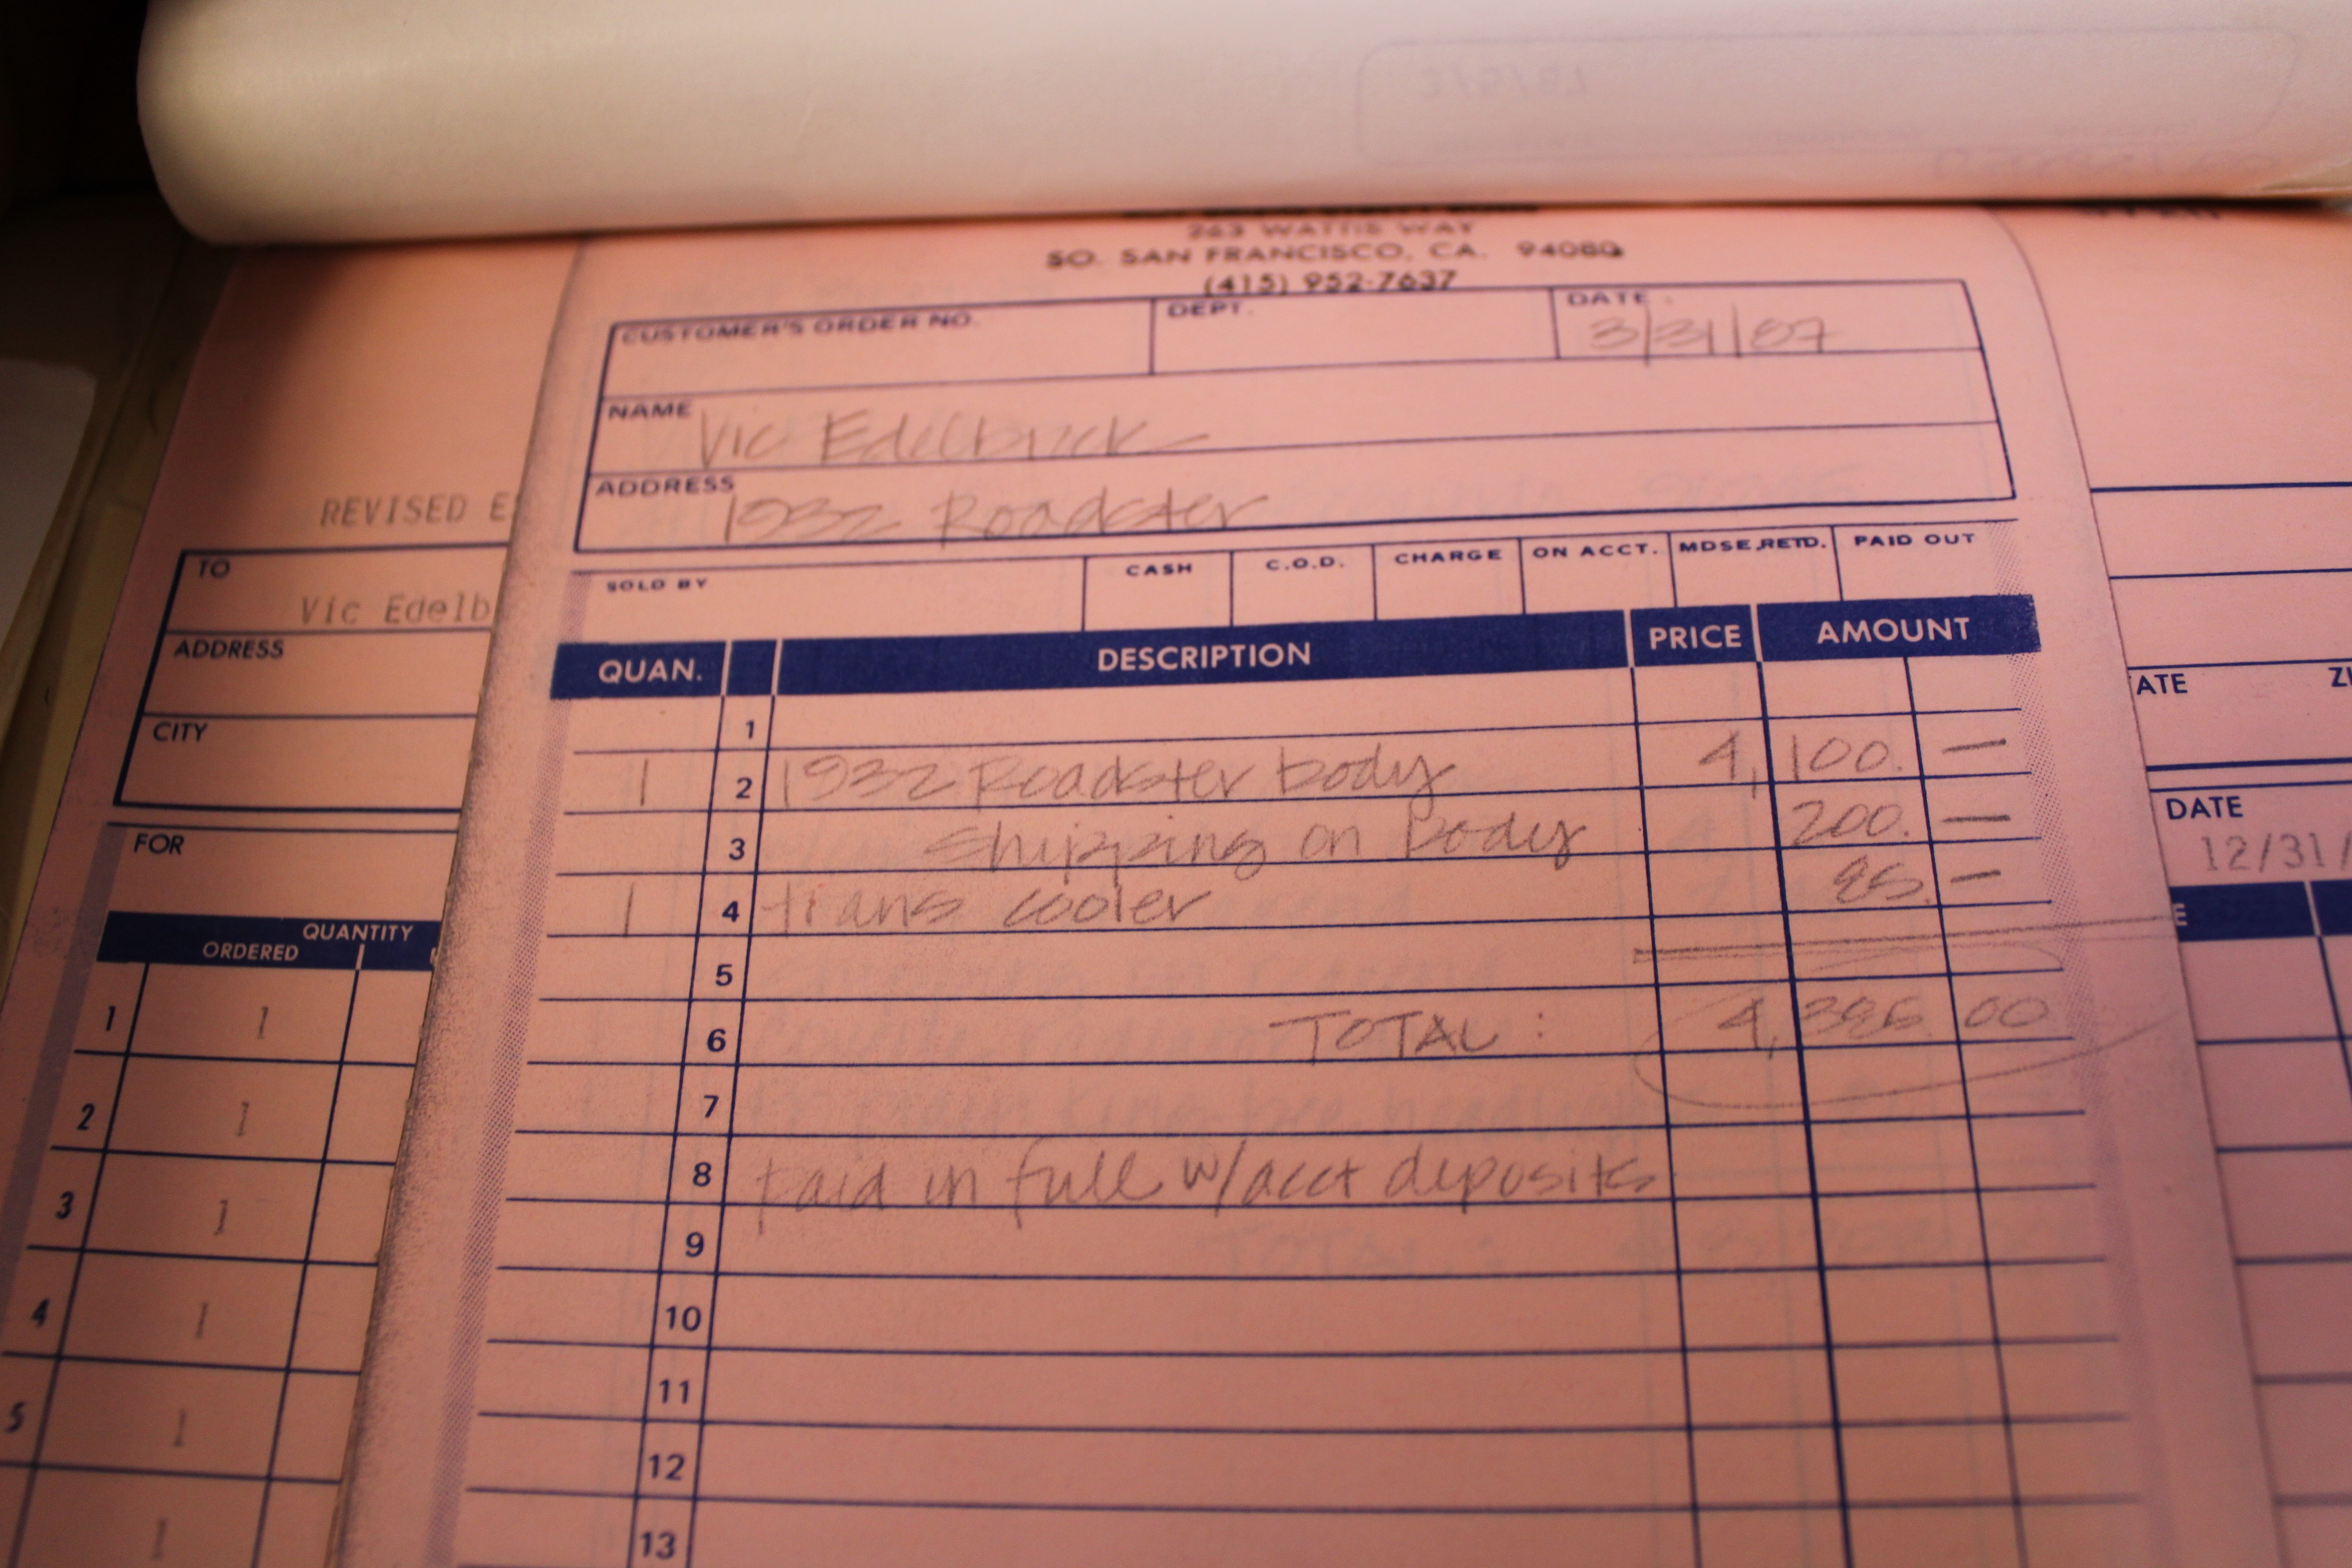 263 WATTIS WAY
SO. SAN FRANCISCO, CA. 94080
(415) 952-7637
CUSTOMER'S ORDER NO. DEPT. DATE
3/31/87
NAME Vic Edelbrock
ADDRESS 1932 Roadster
SOLD BY CASH C.O.D. CHARGE ON ACCT. MDSE. RETD. PAID OUT
QUAN. DESCRIPTION PRICE AMOUNT
1
1 2 1932 Roadster body 4,100. —
3 Shipping on Body 200. —
1 4 trans cooler —
5
6 TOTAL : .00
7
8 Paid in full w/acct deposits
9
10
11
12
13
REVISED E
TO
Vic Edelb
ADDRESS
CITY
FOR
QUANTITY
ORDERED
1 1
2 1
3 1
4 1
5 1
1
ATE ZI
DATE
12/31/
E